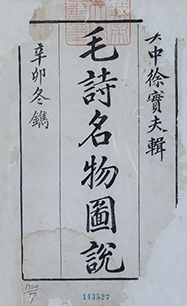 大中徐實夫輯
毛詩名物圖說
辛卯冬鐫
143527